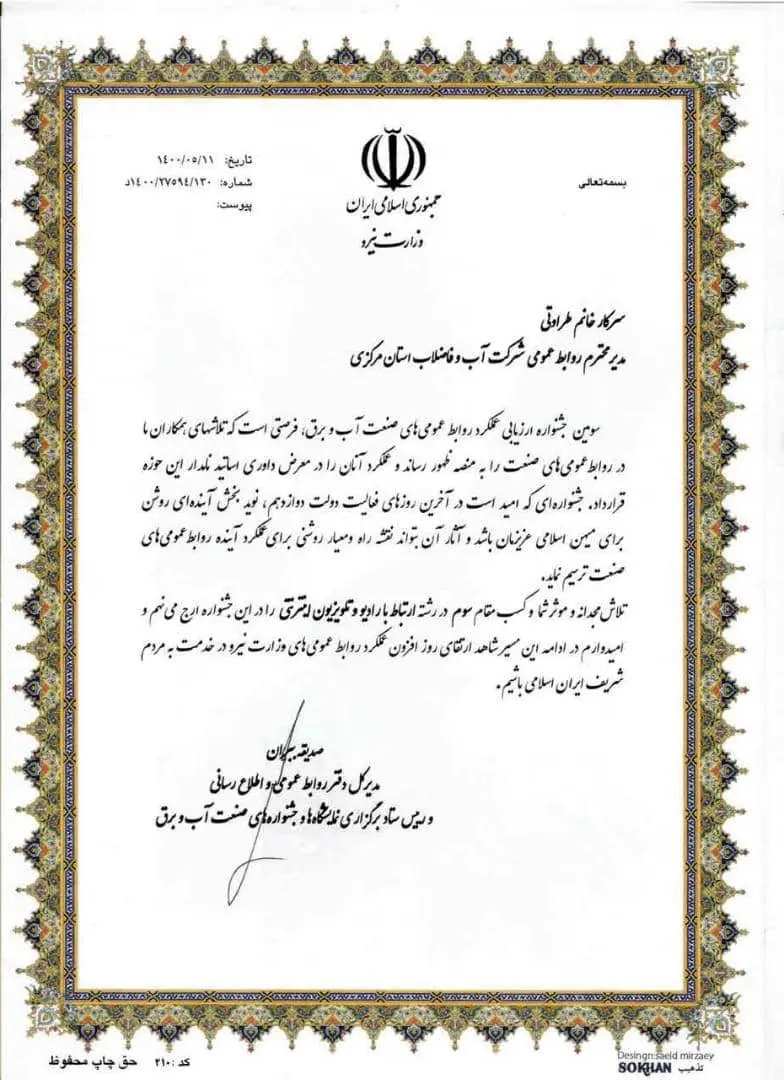 بسمه‌تعالی
جمهوری اسلامی ایران
وزارت نیرو
تاریخ: ۱۴۰۰/۰۵/۱۱
شماره: ۱۴۰۰/۲۷۵۹۴/۱۳۰د
پیوست:
سرکار خانم طراوتی
مدیر محترم روابط عمومی شرکت آب و فاضلاب استان مرکزی
سومین جشنواره ارزیابی عملکرد روابط عمومی‌های صنعت آب و برق، فرصتی است که تلاشهای همکاران ما
در روابط عمومی‌های صنعت را به منصه ظهور رساند و عملکرد آنان را در معرض داوری اساتید نامدار این حوزه
قرارداد. جشنواره‌ای که امید است در آخرین روزهای فعالیت دولت دوازدهم، نوید بخش آینده‌ای روشن
برای میهن اسلامی عزیزمان باشد و آثار آن بتواند نقشه راه و معیار روشنی برای عملکرد آینده روابط عمومی‌های
صنعت ترسیم نماید.
تلاش مجدانه و موثر شما و کسب مقام سوم در رشته ارتباط با رادیو و تلویزیون اینترنتی را در این جشنواره ارج می نهم و
امیدوارم در ادامه این مسیر شاهد ارتقای روز افزون عملکرد روابط عمومی‌های وزارت نیرو در خدمت به مردم
شریف ایران اسلامی باشیم.
صدیقه ببران
مدیرکل دفتر روابط عمومی و اطلاع رسانی
و رییس ستاد برگزاری نمایشگاه‌ها و جشنواره‌های صنعت آب و برق
حق چاپ محفوظ
کد : ۲۱۰
Desingn:saeid mirzaey
تذهیب SOKHAN